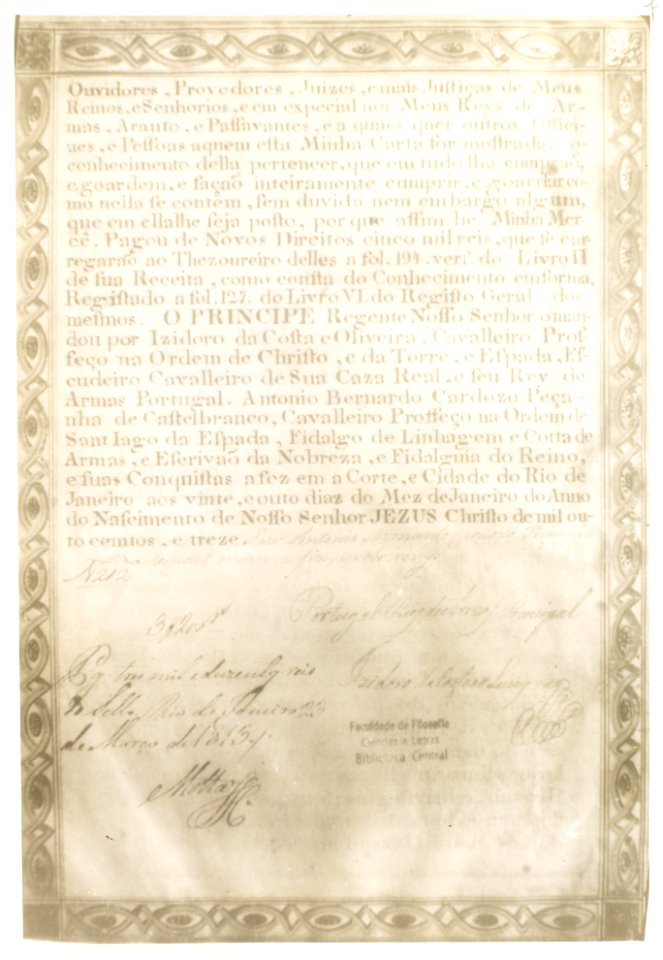 Ouvidores, Provedores, Juizes, e mais Juſtiças de Meus
Reinos, e Senhorios, e em expecial aos Meus Reys de Ar-
mas, Arauto, e Paſſavantes, e a quaes quer outros Offici-
aes, e Peſſoas aquem eſta Minha Carta for moſtrada, e o
conhecimento della pertencer, que em tudo lha cumpraõ,
e goardem, e façaõ inteiramente cumprir, e goardar co-
mo neila ſe contem, ſem duvida nem embargo algum,
que em ellalhe ſeja poſto, por que aſſim he Minha Mer-
cê. Pagou de Novos Direitos cinco mil reis, que ſe car-
regaraõ ao Thezoureiro delles a fol. 194. verſ. do Livro II
de ſua Receita, como conſta do Conhecimento emforma,
Regiſtado a fol. 127. do Livro VI. do Regiſto Geral dos
meſmos. O PRINCIPE Regente Noſſo Senhor oman-
dou por Izidoro da Coſta e Oliveira, Cavalleiro Prof-
feço na Ordem de Chriſto, e da Torre, e Eſpada, Eſ-
cudeiro Cavalleiro de Sua Caza Real, e ſeu Rey de
Armas Portugal. Antonio Bernardo Cardozo Peça-
nha de Caſtelbranco, Cavalleiro Proffeço na Ordem de
Sant Iago da Eſpada, Fidalgo de Linhagem e Cotta de
Armas, e Eſerivaõ da Nobreza, e Fidalguia do Reino,
e ſuas Conquiſtas a fez em a Corte, e Cidade do Rio de
Janeiro aos vinte, e outo diaz do Mez de Janeiro do Anno
do Naſcimento de Noſſo Senhor JEZUS Chriſto de mil ou-
to cemtos, e treze. Antonio Bernardo
Nº 212
Portugal Rey
Pg. tres mil e duzentos reis
do Sello Rio de Janeiro 23
de Março de 1813
Izidoro da
Motta
Faculdade de Filosofia
Ciencias e Letras
Biblioteca Central